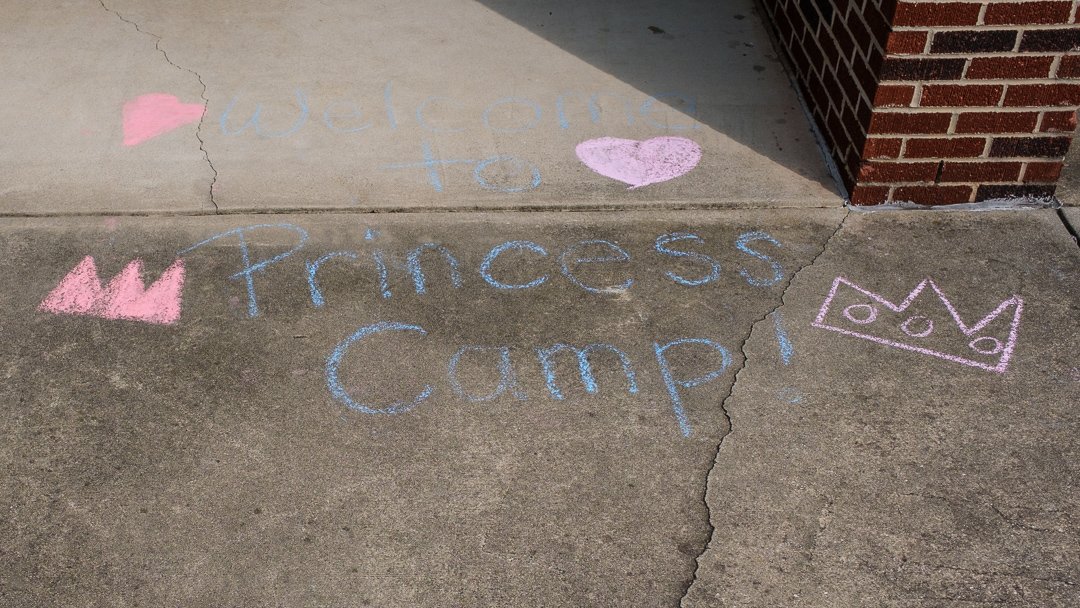 Welcome
to
Princess
Camp!